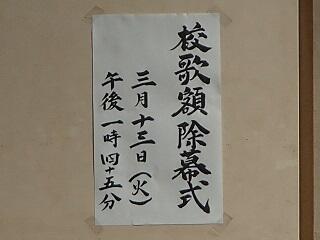 校歌額除幕式
三月十三日(火)
午後一時四十五分